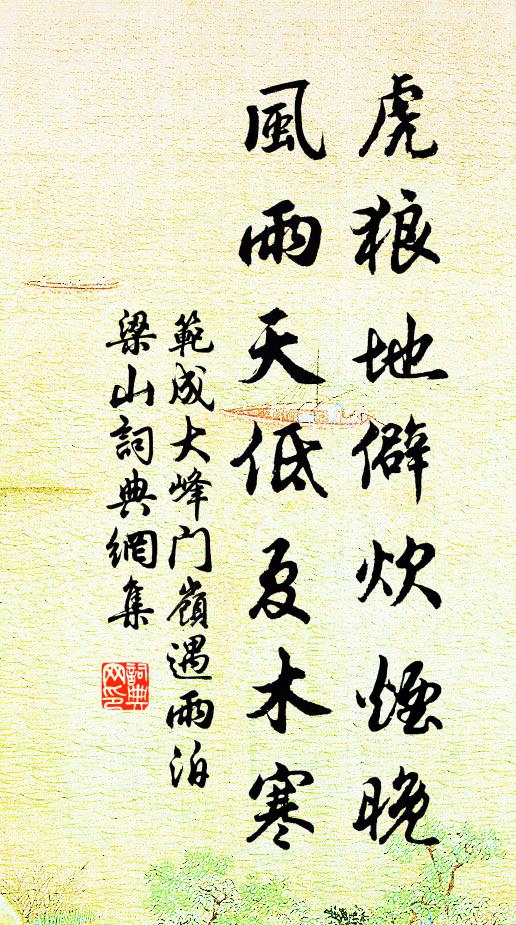 虎狼地僻炊煙晚
風雨天低夏木寒
範成大峰门嶺遇雨泊
梁山詞典網集
詞典網印